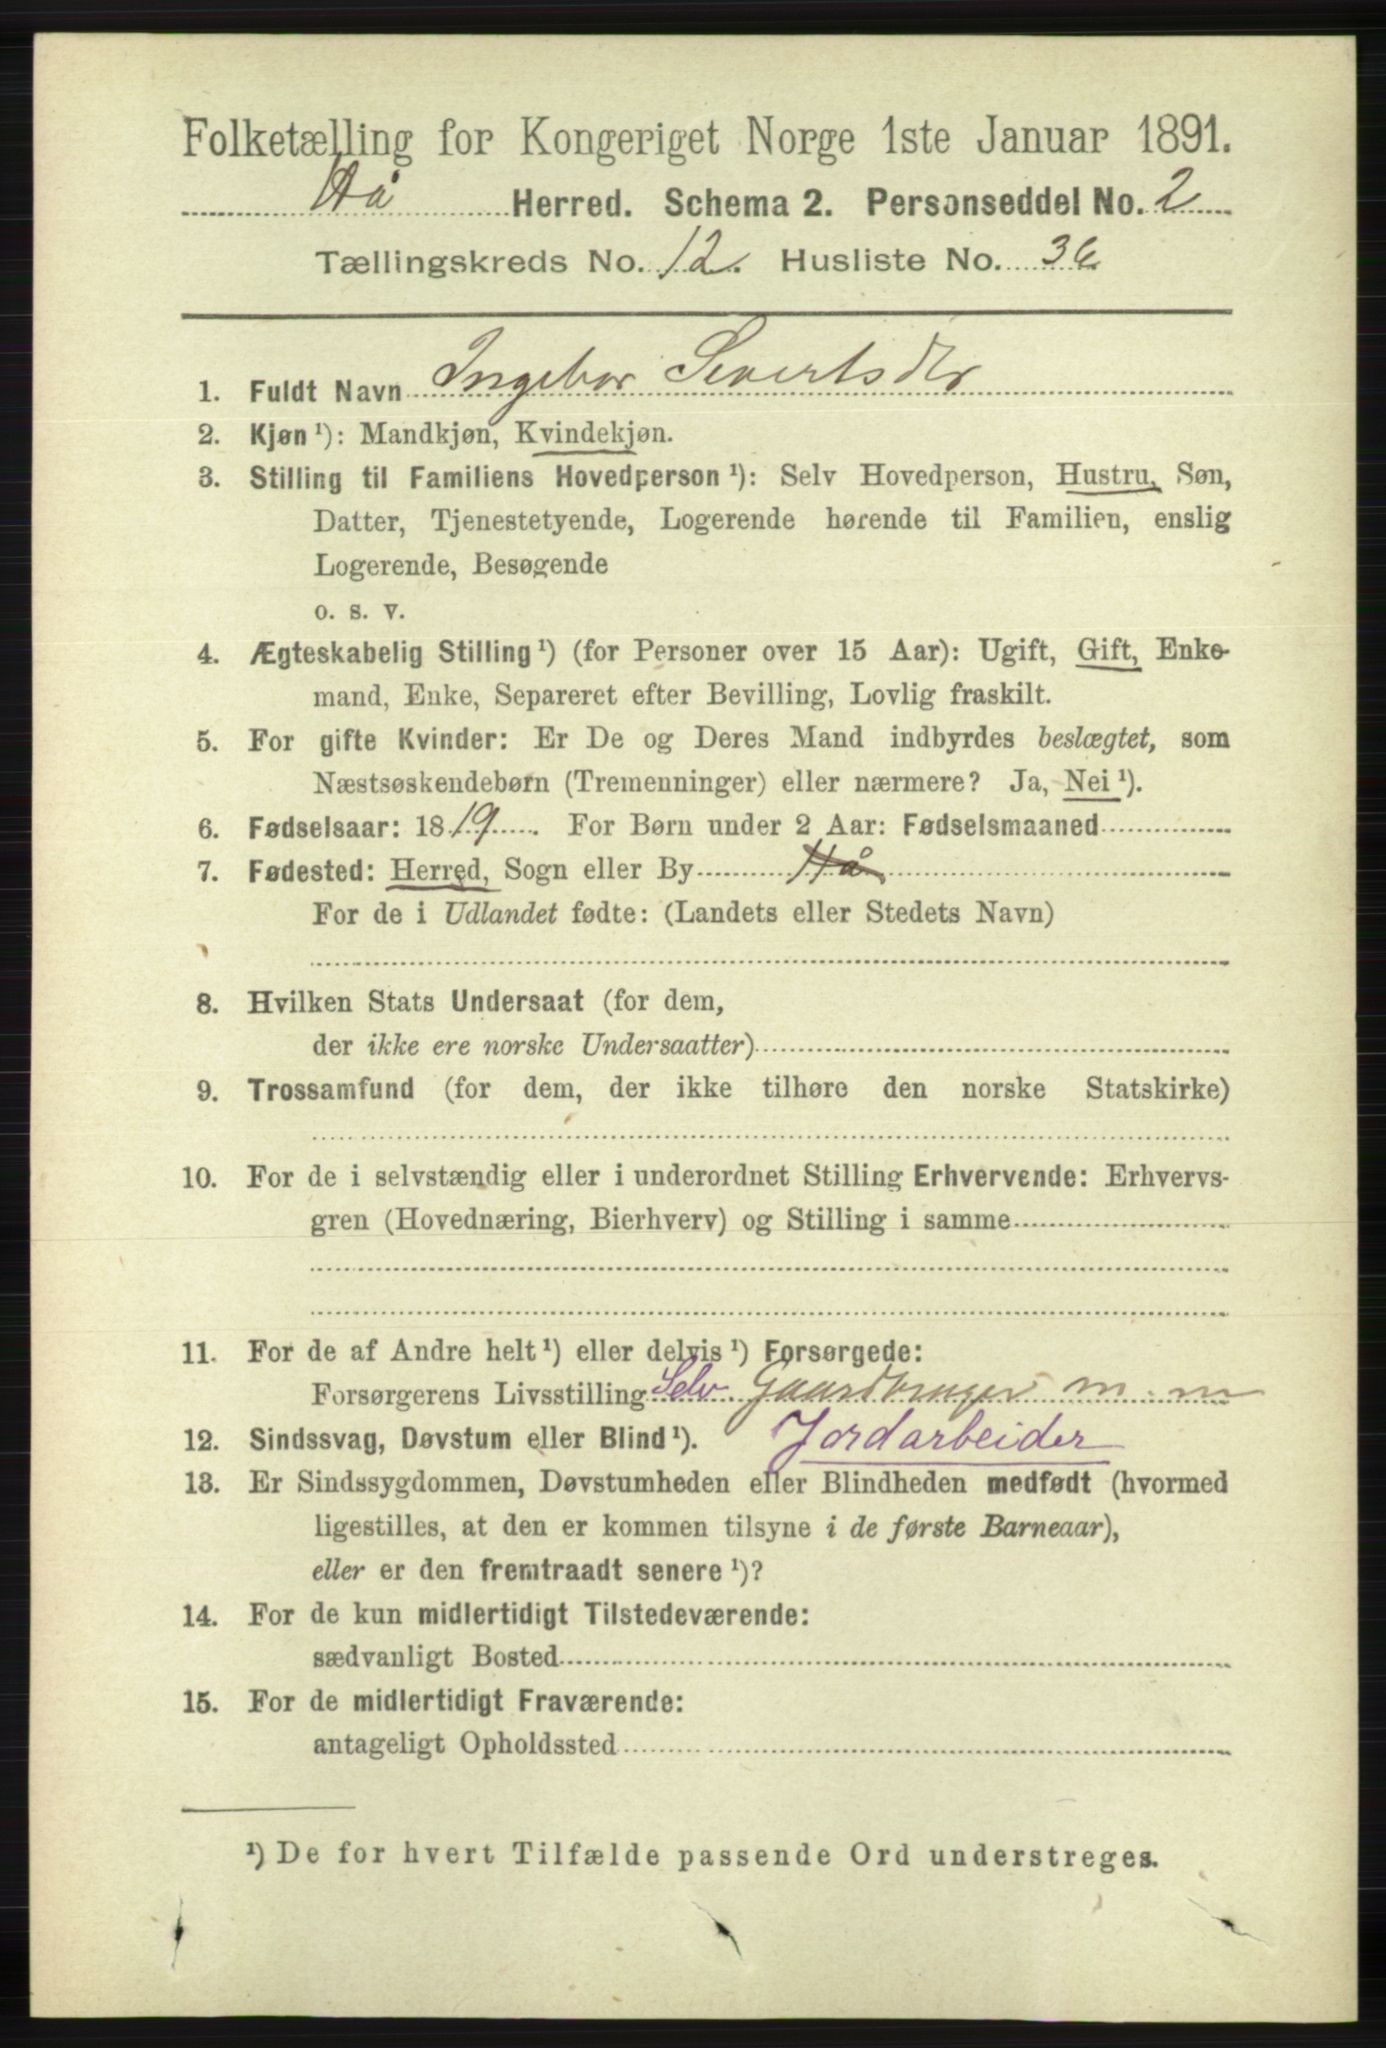 Folketælling for Kongeriget Norge 1ste Januar 1891.
Hå Herred. Schema 2. Personseddel No. 2
Tællingskreds No. 12. Husliste No. 36
1. Fuldt Navn Ingebor Sivertsdtr
2. Kjøn ¹): Mandkjøn, Kvindekjøn.
3. Stilling til Familiens Hovedperson ¹): Selv Hovedperson, Hustru, Søn,
Datter, Tjenestetyende, Logerende hørende til Familien, enslig
Logerende, Besøgende
o. s. v.
4. Ægteskabelig Stilling ¹) (for Personer over 15 Aar): Ugift, Gift, Enke-
mand, Enke, Separeret efter Bevilling, Lovlig fraskilt.
5. For gifte Kvinder: Er De og Deres Mand indbyrdes beslægtet, som
Næstsøskendebørn (Tremenninger) eller nærmere? Ja, Nei ¹).
6. Fødselsaar: 1819. For Børn under 2 Aar: Fødselsmaaned
7. Fødested: Herred, Sogn eller By Hå
For de i Udlandet fødte: (Landets eller Stedets Navn)
8. Hvilken Stats Undersaat (for dem,
der ikke ere norske Undersaatter)
9. Trossamfund (for dem, der ikke tilhøre den norske Statskirke)
10. For de i selvstændig eller i underordnet Stilling Erhvervende: Erhvervs-
gren (Hovednæring, Bierhverv) og Stilling i samme
11. For de af Andre helt ¹) eller delvis ¹) Forsørgede:
Forsørgerens Livsstilling Selv. Gaardbruger m. m
12. Sindssvag, Døvstum eller Blind ¹). Jordarbeider
13. Er Sindssygdommen, Døvstumheden eller Blindheden medfødt (hvormed
ligestilles, at den er kommen tilsyne i de første Barneaar),
eller er den fremtraadt senere ¹)?
14. For de kun midlertidigt Tilstedeværende:
sædvanligt Bosted
15. For de midlertidigt Fraværende:
antageligt Opholdssted
¹) De for hvert Tilfælde passende Ord understreges.